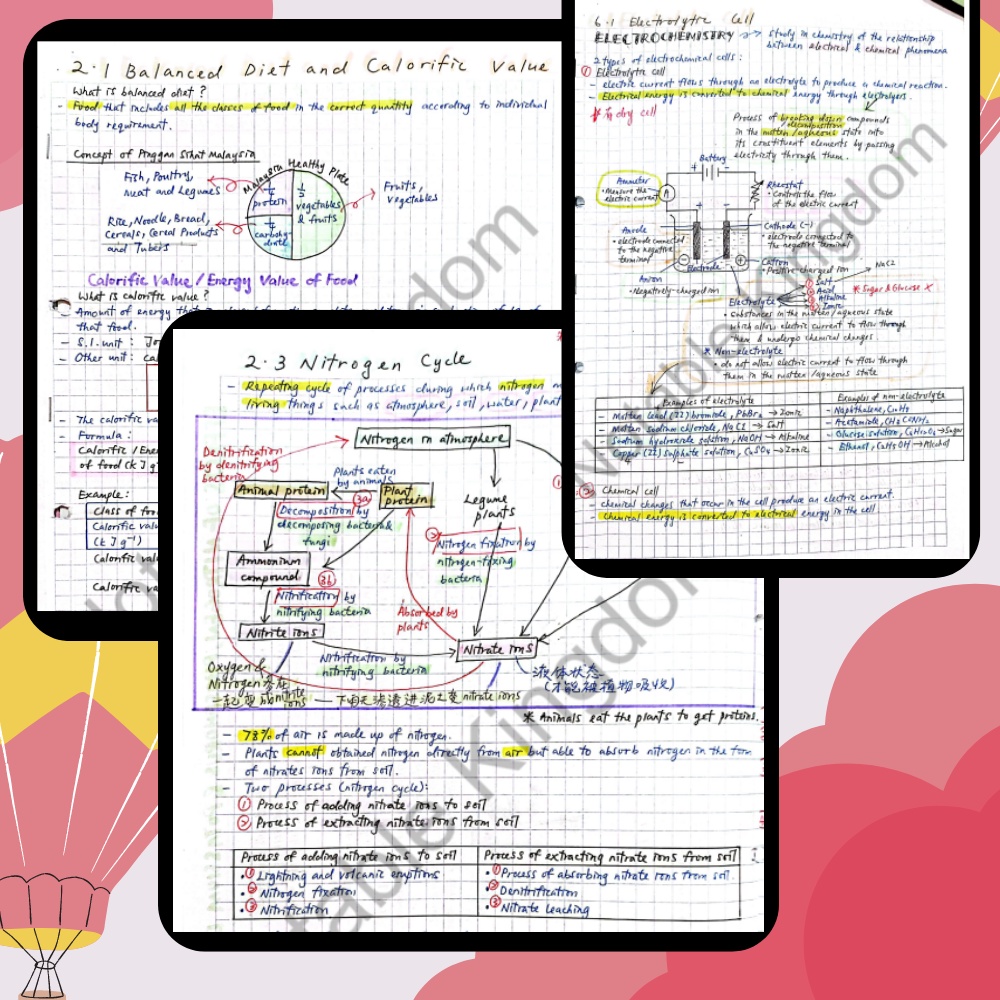 2.1 Balanced Diet and Calorific Value
What is balanced diet?
- Food that includes all the classes of food in the correct quantity according to individual
body requirement.
Concept of Pinggan Sihat Malaysia
Malaysia Healthy Plate
Fish, Poultry,
meat and Legumes
1/4 protein
1/2 vegetables & fruits
Fruits,
Vegetables
Rice, Noodle, Bread,
Cereals, Cereal Products
and Tubers
1/4 carbohydrate
Calorific Value / Energy Value of Food
What is calorific value?
- Amount of energy that
that food.
- S.I. unit :
- Other unit :
- The calorific
- Formula :
Calorific
of food (kJ g
Example :
Class of
Calorific
(kJ g⁻¹)
Calorific
Calorific
2.3 Nitrogen Cycle
- Repeating cycle of processes during which nitrogen
living things such as atmosphere, soil, water, plant
Nitrogen in atmosphere
Denitrification
by denitrifying
bacteria
Plants eaten
by animals
Animal protein
Plant
protein
3a
Decomposition by
decomposing bacteria &
fungi
Legume
plants
1
2
Nitrogen fixation by
nitrogen-fixing
bacteria
Ammonium
compound
3b
Nitrification by
nitrifying bacteria
Absorbed by
plants
Nitrite ions
Nitrate ions
Nitrification by
nitrifying bacteria
Oxygen &
Nitrogen
一起变成nitrite
ions
nitrate ions
液体状态
(才能被植物吸收)
* Animals eat the plants to get proteins.
- 78% of air is made up of nitrogen.
- Plants cannot obtained nitrogen directly from air but able to absorb nitrogen in the form
of nitrates ions from soil.
- Two processes (nitrogen cycle):
① Process of adding nitrate ions to soil
② Process of extracting nitrate ions from soil
Process of adding nitrate ions to soil
Process of extracting nitrate ions from soil
• ① Lightning and volcanic eruptions
• ① Process of absorbing nitrate ions from soil.
• ② Nitrogen fixation
• ② Denitrification
• ③ Nitrification
• ③ Nitrate leaching
6.1 Electrolytic Cell
ELECTROCHEMISTRY → Study in chemistry of the relationship
between electrical & chemical phenomena
2 types of electrochemical cells :
① Electrolytic cell
- electric current flows through an electrolyte to produce a chemical reaction.
- Electrical energy is converted to chemical energy through electrolysis.
dry cell
Process of breaking down compounds
/decomposition
in the molten/aqueous state into
its constituent elements by passing
electricity through them.
Battery
+
-
Ammeter
• Measure the
electric current
A
Rheostat
• Controls the flow
of the electric current
+
-
Anode
• electrode connected
to the negative
terminal
Cathode (-)
• electrode connected to
the negative terminal
Cation
• Positive-charged ion
Electrode
Anion
• Negatively-charged ion
NaCl
① Salt
② Acid
③ Alkaline
④ Ionic
* Sugar & Glucose X
Electrolyte
• Substances in the molten/aqueous state
which allow electric current to flow through
them & undergo chemical changes.
* Non-electrolyte
• do not allow electric current to flow through
them in the molten/aqueous state
Examples of electrolyte
Examples of non-electrolyte
- Molten lead (II) bromide, PbBr₂ → Ionic
- Naphthalene, C₁₀H₈
- Molten sodium chloride, NaCl → Salt
- Acetamide, CH₃CONH₂
- Sodium hydroxide solution, NaOH → Alkaline
- Glucose solution, C₆H₁₂O₆ → Sugar
- Copper (II) sulphate solution, CuSO₄ → Ionic
- Ethanol, C₂H₅OH → Alcohol
② Chemical cell
- chemical changes that occur in the cell produce an electric current.
- Chemical energy is converted to electrical energy in the cell
table Kingdom